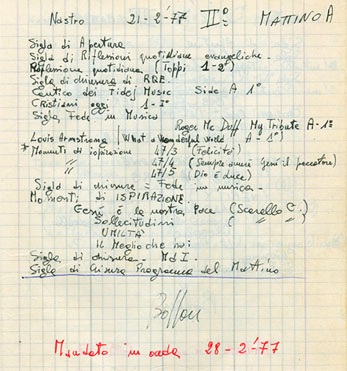 Nastro 21-2-'77 IIº MATTINO A
Sigla di Apertura
Sigla di Riflessioni quotidiane evangeliche -
Riflessione quotidiana (Toppi 1-2º)
Sigla di chiusura di RQE
Cantico dei Tidej Music Side A 1º
Cristiani oggi 1-Iº
Sigla, Fede in Musica
Roger Mc Duff My Tribute A-1º
Louis Armstrong (What a wonderful world A-1º)
* Momenti di ispirazione 47/3 (Felicità)
" 47/4 (Sempre amici Gesù il peccatore)
" 47/5 (Dio è luce)
Sigla di chiusura = Fede in musica -
Momenti di ISPIRAZIONE
Gesù è la nostra Pace (Scarello C.)
Sollecitudini (" )
UMILTÀ
il Meglio che noi
Sigla di chiusura - Md I.
Sigla di Chiusura Programma del Mattino
Mandato in onda 28-2-'77